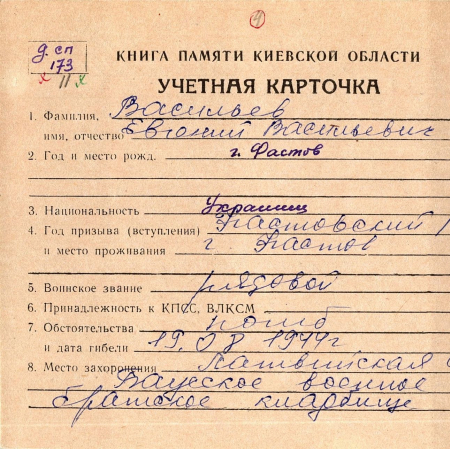 4
д. сп
173
х 11 х
КНИГА ПАМЯТИ КИЕВСКОЙ ОБЛАСТИ
УЧЕТНАЯ КАРТОЧКА
1. Фамилия, Васильев
имя, отчество Евгений Васильевич
2. Год и место рожд. г. Фастов
3. Национальность Украинец
4. Год призыва (вступления) Фастовский
и место проживания г. Фастов
5. Воинское звание рядовой
6. Принадлежность к КПСС, ВЛКСМ
7. Обстоятельства погиб
и дата гибели 19.08.1944г
8. Место захоронения Латвийская
Бауское военное
братское кладбище